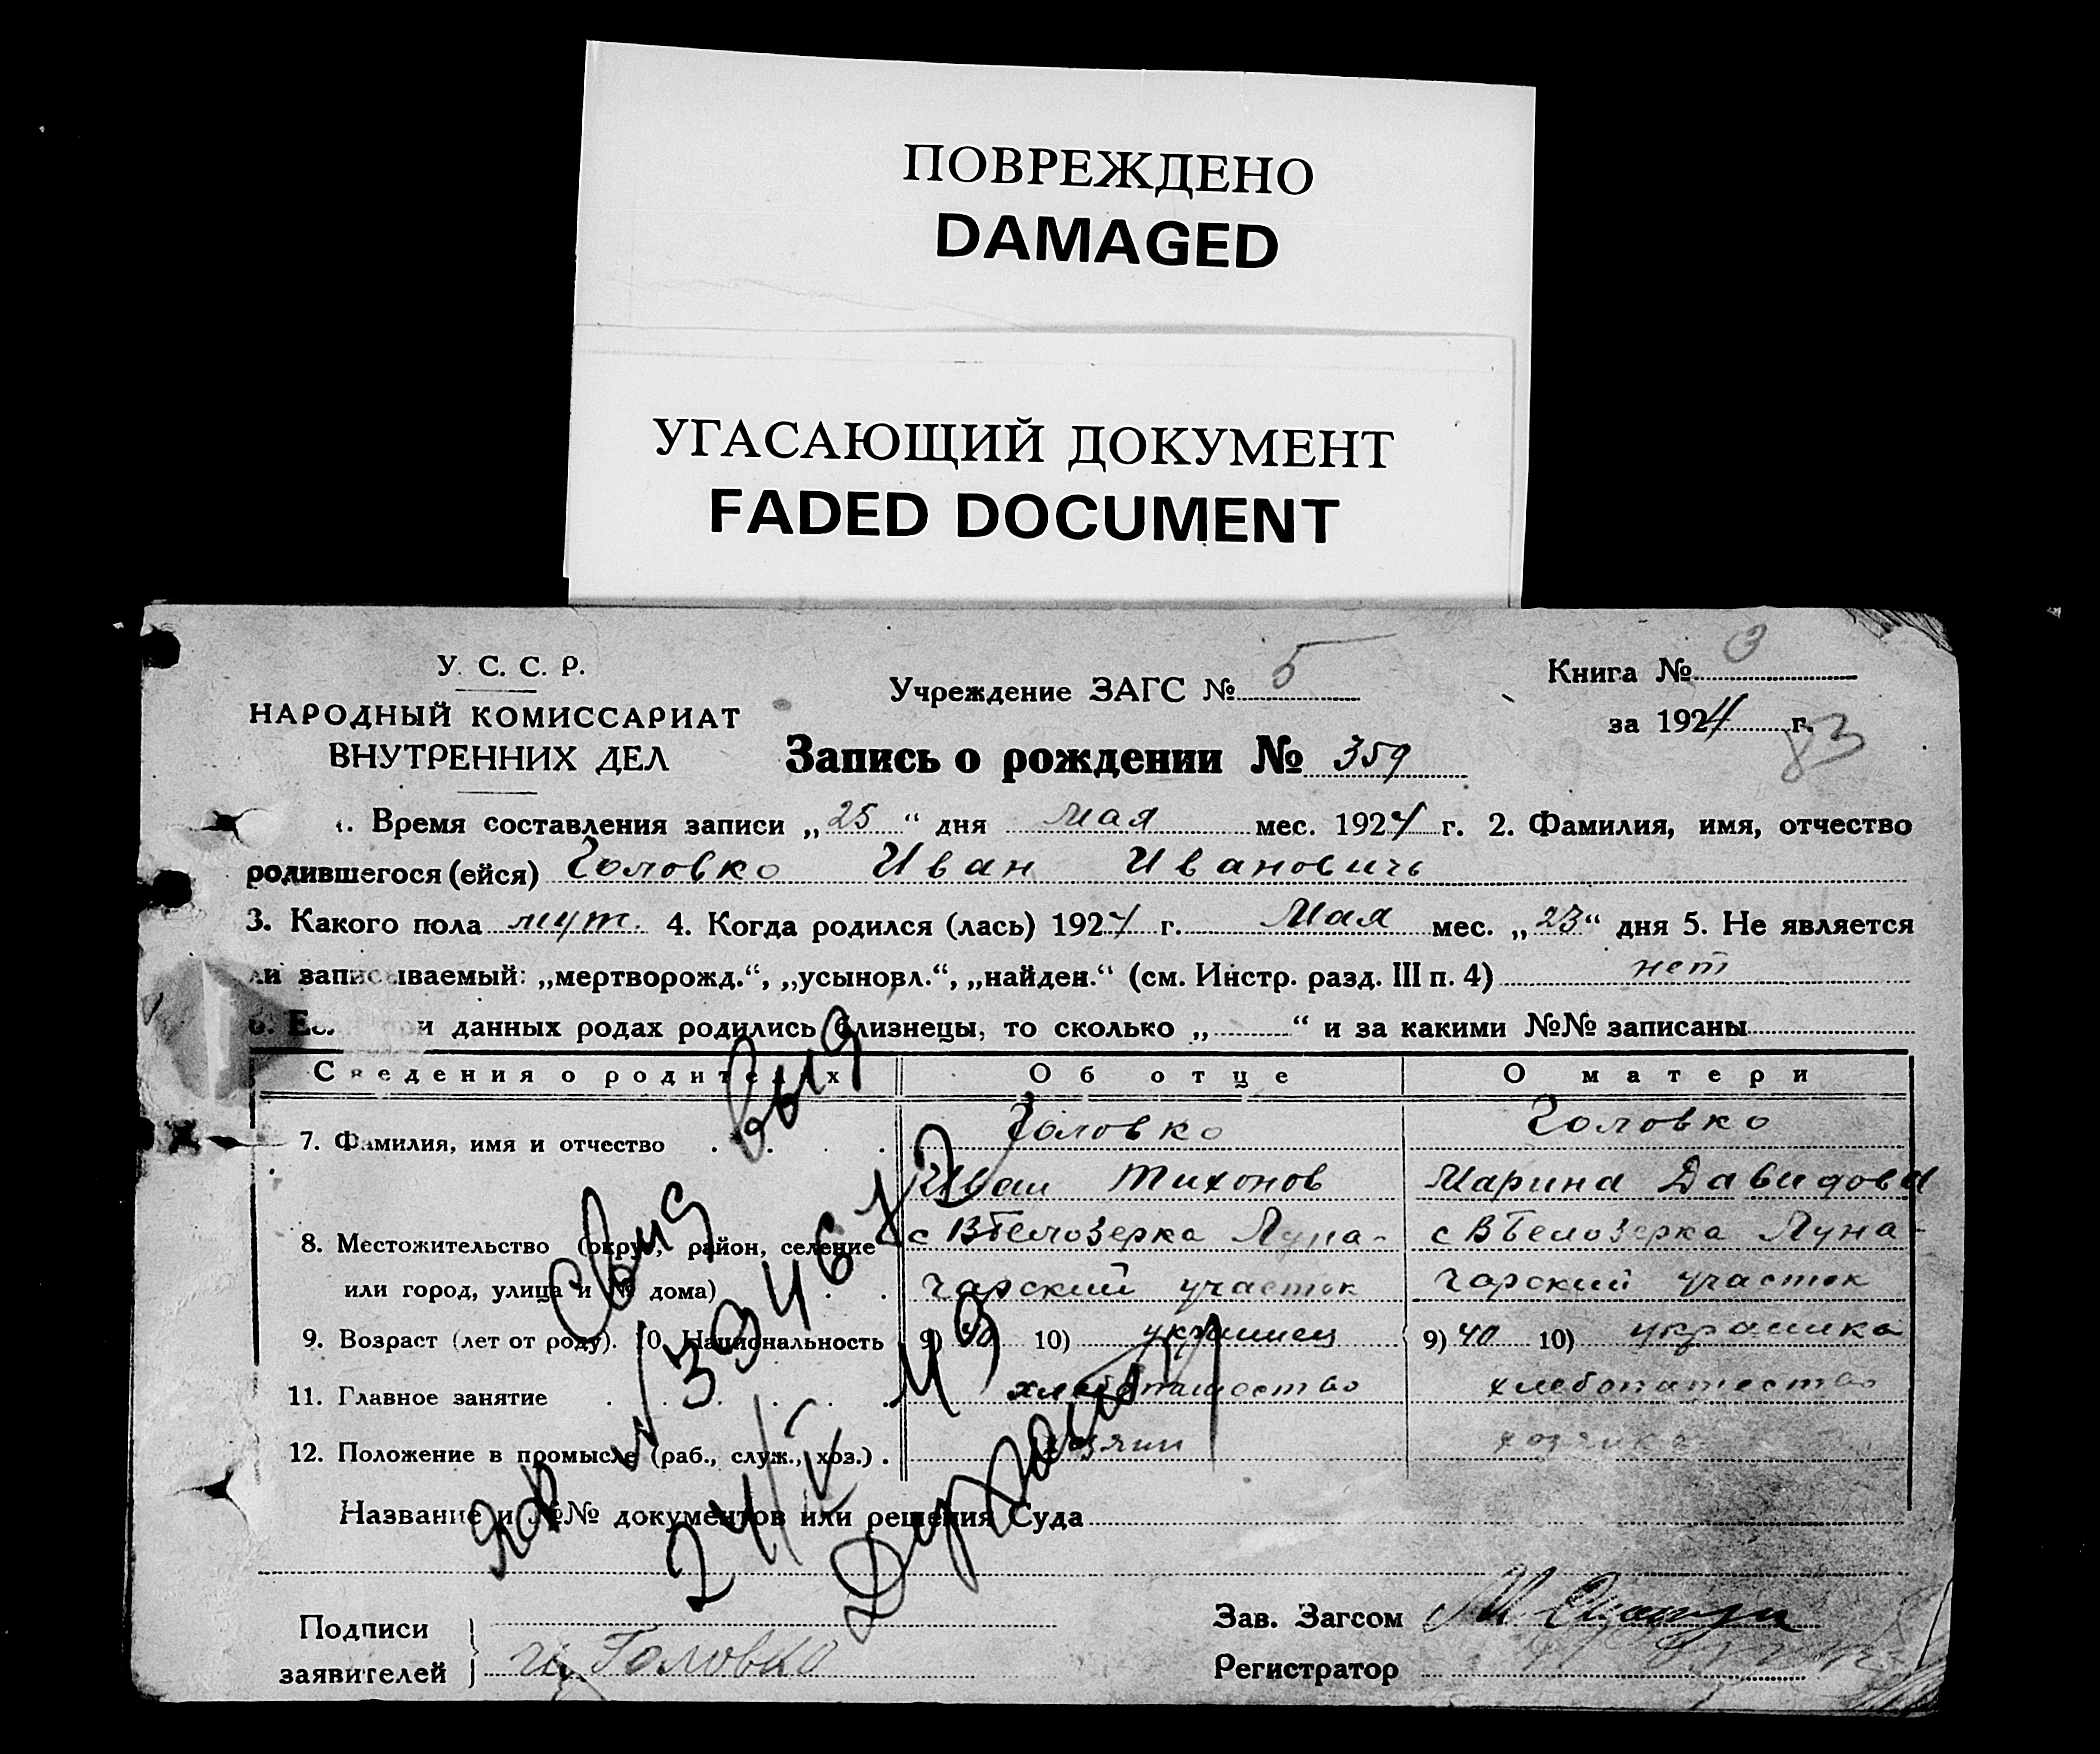 ПОВРЕЖДЕНО
DAMAGED
УГАСАЮЩИЙ ДОКУМЕНТ
FADED DOCUMENT
У. С. С. Р.
НАРОДНЫЙ КОМИССАРИАТ
ВНУТРЕННИХ ДЕЛ
Учреждение ЗАГС № 5
Книга № 3
за 1924 г.
83
Запись о рождении № 359
1. Время составления записи „25“ дня мая мес. 1924 г. 2. Фамилия, имя, отчество
родившегося (ейся) Головко Иван Ивановичь
3. Какого пола муж. 4. Когда родился (лась) 1924 г. Мая мес. „23“ дня 5. Не является
ли записываемый: „мертворожд.“, „усыновл.“, „найден.“ (см. Инстр. разд. III п. 4) нет
6. Если при данных родах родились близнецы, то сколько „ “ и за какими №№ записаны
Сведения о родителях Об отце О матери
7. Фамилия, имя и отчество Головко Головко
Иван Тихонов Марина Давидова
8. Местожительство (округ, район, селение с ВБелозерка Луна- с ВБелозерка Луна-
или город, улица и № дома) чарский участок чарский участок
9. Возраст (лет от роду). 10. Национальность 9) 40 10) украинец 9) 40 10) украинка
11. Главное занятие хлебопашество хлебопашество
12. Положение в промысле (раб., служ., хоз.) хозяин хозяйка
Название и №№ документов или решения Суда
Выд
Свид
24/V 49
Подписи
заявителей Головко
Зав. Загсом
Регистратор